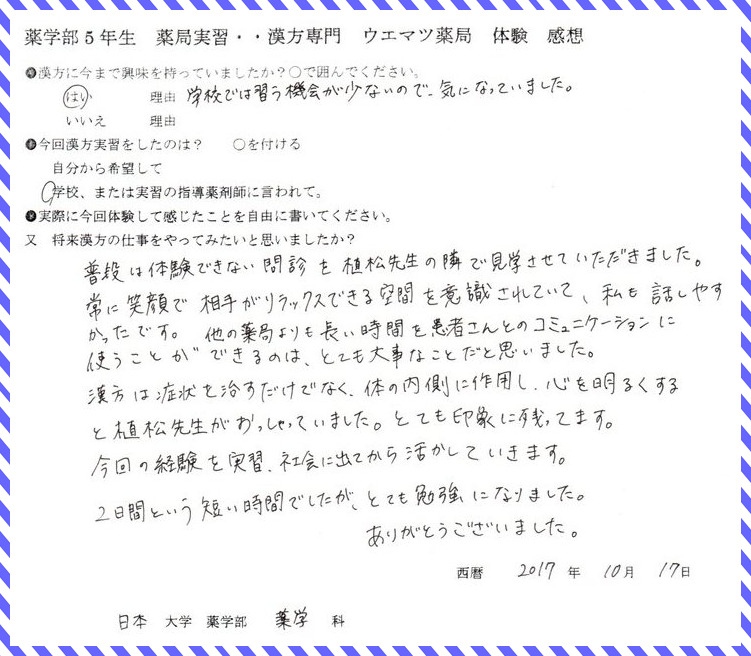 薬学部5年生　薬局実習・・漢方専門　ウエマツ薬局　体験　感想
●漢方に今まで興味を持っていましたか？○で囲んでください。
はい　理由　学校では習う機会が少ないので、気になっていました。
いいえ　理由
●今回漢方実習をしたのは？　○を付ける
自分から希望して
○学校、または実習の指導薬剤師に言われて。
●実際に今回体験して感じたことを自由に書いてください。
又　将来漢方の仕事をやってみたいと思いましたか？
普段は体験できない問診を植松先生の隣で見学させていただきました。
常に笑顔で相手がリラックスできる空間を意識されていて、私も話しやす
かったです。他の薬局よりも長い時間を患者さんとのコミュニケーションに
使うことができるのは、とても大事なことだと思いました。
漢方は症状を治すだけでなく、体の内側に作用し、心を明るくする
と植松先生がおっしゃっていました。とても印象に残ってます。
今回の経験を実習、社会に出てから活かしていきます。
2日間という短い時間でしたが、とても勉強になりました。
ありがとうございました。
西暦　2017年　10月　17日
日本　大学　薬学部　薬学　科